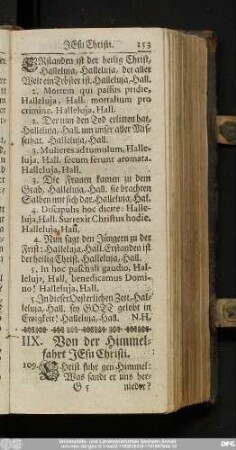 JEsu Christi. 153
ERstanden ist der heilig Christ,
Halleluja, Halleluja. der aller
Welt ein Tröster ist, Halleluja, Hall.
2. Mortem qui passus pridie,
Halleluja, Hall. mortalium pro
crimine. Halleluja, Hall.
2. Der nun den Tod erlitten hat,
Halleluja, Hall. um unser aller Mis-
sethat. Halleluja, Hall.
3. Mulieres ad tumulum, Halle-
luja, Hall. secum ferunt aromata.
Halleluja, Hall.
3. Die Frauen kamen zu dem
Grab, Halleluja, Hall. sie brachten
Salben mit sich dar. Halleluja, Hal.
4. Discipulis hoc dicite: Halle-
luja, Hall. Surrexit Christus hodie,
Halleluja, Hall.
4. Nun sagt den Jüngern zu der
Frist: Halleluja, Hall. Erstanden ist
der heilig Christ. Halleluja, Hall.
5. In hoc paschali gaudio, Hal-
leluja, Hall, benedicamus Domi-
no! Halleluja, Hall.
5. In dieser Oesterlichen Zeit, Hal-
leluja, Hall. sey GOTT gelobt in
Ewigkeit! Halleluja, Hall. N.H.
IIX. Von der Himmel-
fahrt JEsu Christi.
109. Christ fuhr gen Himmel:
Was sandt er uns her-
G 5 nieder?